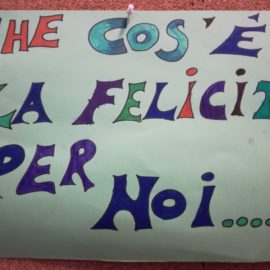 HE COS'È
LA FELICIT
PER
NOI....